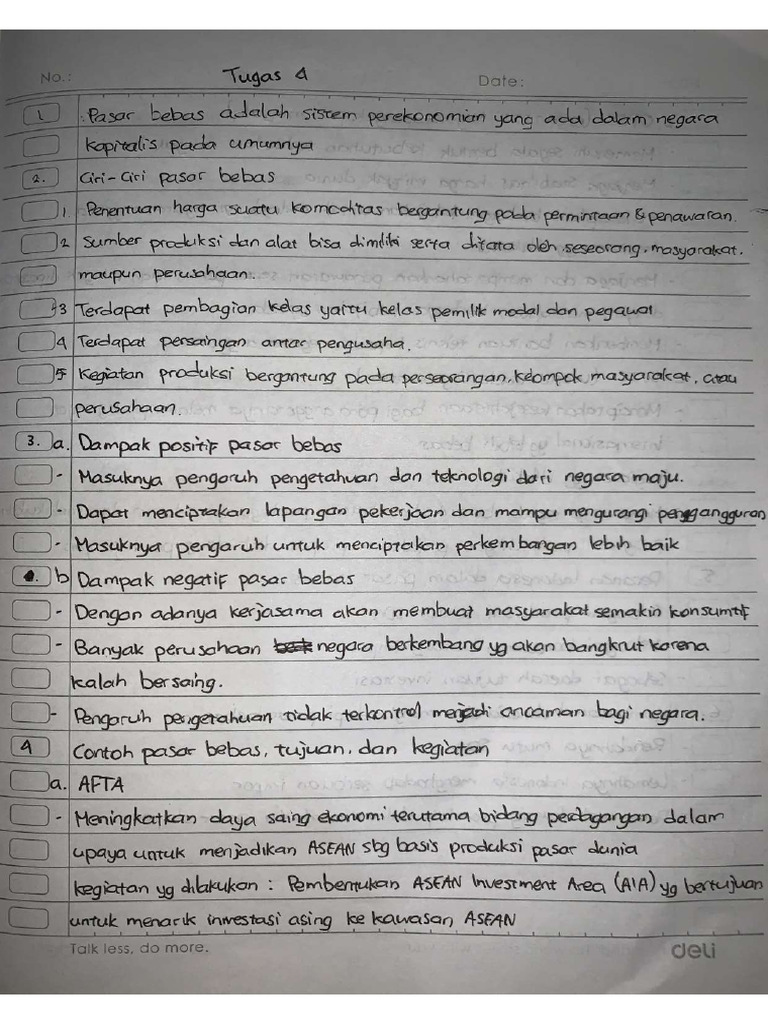 No.: Tugas 4 Date:
1. Pasar bebas adalah sistem perekonomian yang ada dalam negara
kapitalis pada umumnya
2. Ciri-Ciri pasar bebas
1. Penentuan harga suatu komoditas bergantung pada permintaan & penawaran.
2 Sumber produksi dan alat bisa dimiliki serta ditata oleh seseorang, masyarakat.
maupun perusahaan.
3 Terdapat pembagian kelas yaitu kelas pemilik modal dan pegawai
4 Terdapat persaingan antar pengusaha.
5 Kegiatan produksi bergantung pada perseorangan, kelompok masyarakat, atau
perusahaan.
3. a. Dampak positif pasar bebas
- Masuknya pengaruh pengetahuan dan teknologi dari negara maju.
- Dapat menciptakan lapangan pekerjaan dan mampu mengurangi pengangguran
- Masuknya pengaruh untuk menciptakan perkembangan lebih baik
b Dampak negatif pasar bebas
- Dengan adanya kerjasama akan membuat masyarakat semakin konsumtif
- Banyak perusahaan negara berkembang yg akan bangkrut karena
kalah bersaing.
- Pengaruh pengetahuan tidak terkontrol menjadi ancaman bagi negara.
4 Contoh pasar bebas, tujuan, dan kegiatan
a. AFTA
- Meningkatkan daya saing ekonomi terutama bidang perdagangan dalam
upaya untuk menjadikan ASEAN sbg basis produksi pasar dunia
kegiatan yg dilakukan : Pembentukan ASEAN Investment Area (AIA) yg bertujuan
untuk menarik investasi asing ke kawasan ASEAN
Talk less, do more. deli